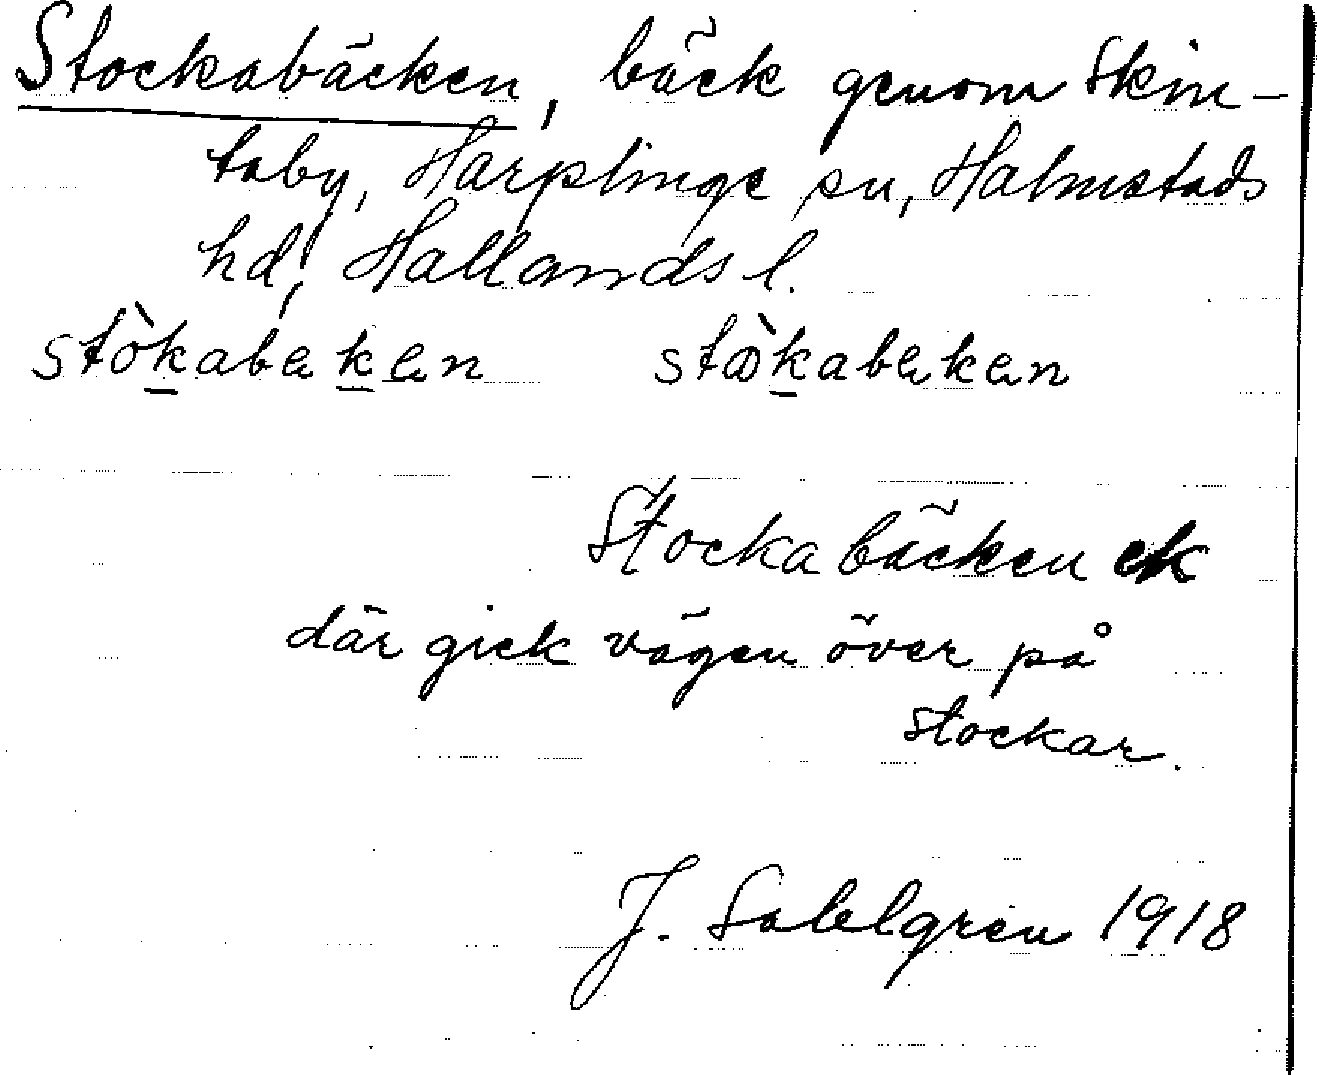 Stockabäcken, bäck genom Skin-
taby, Harplinge sn, Halmstads
hd, Hallands l.
stòkabækæn stòkabækæn
Stockabäcken ek
där gick vägen över på
stockar.
J. Sahlgren 1918